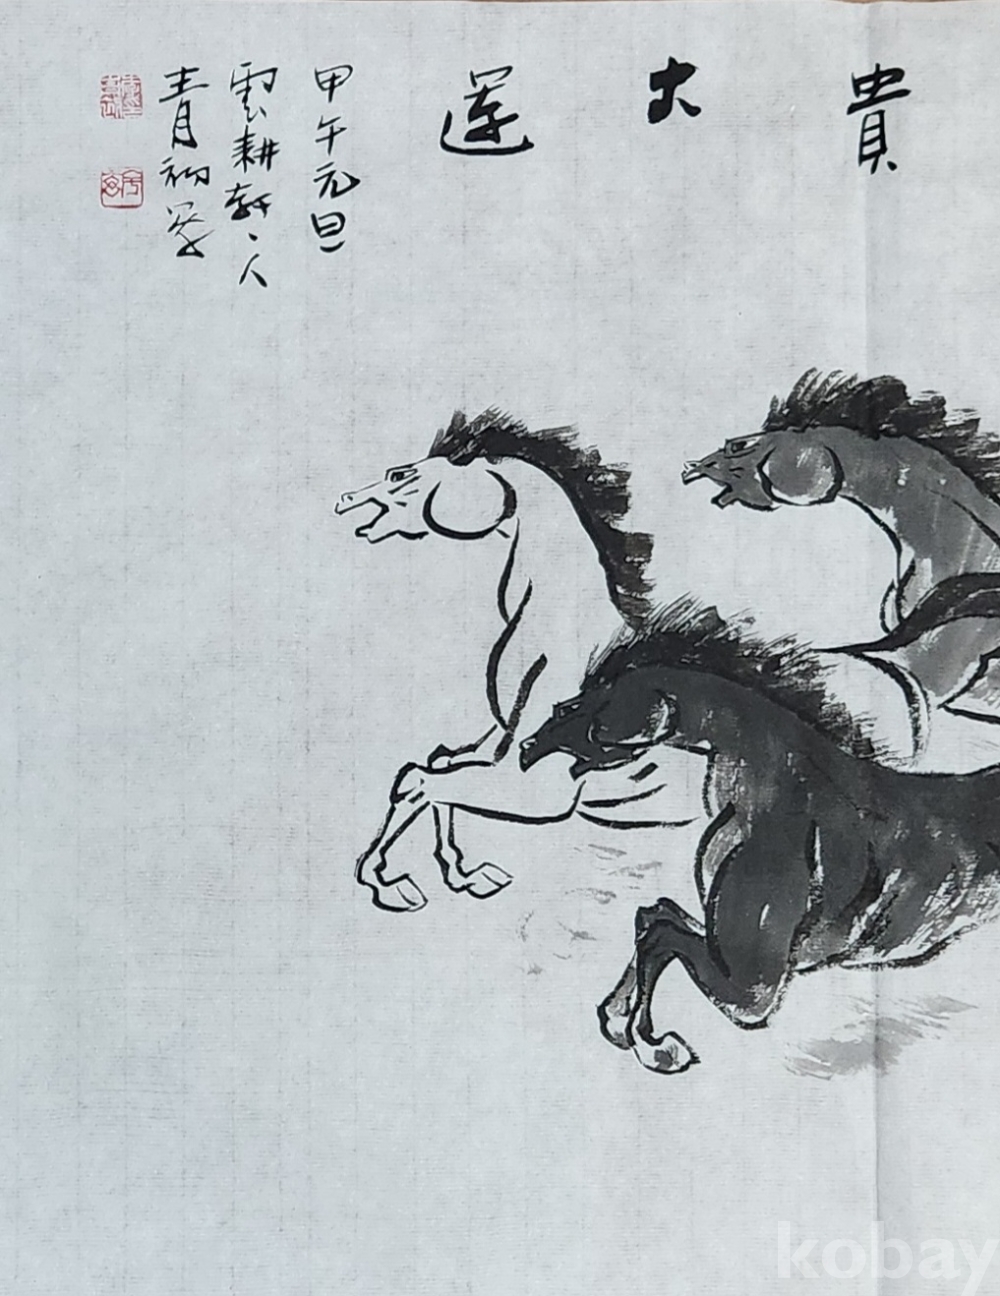 貴大運
甲午元旦
雲耕軒
人
青
kobay